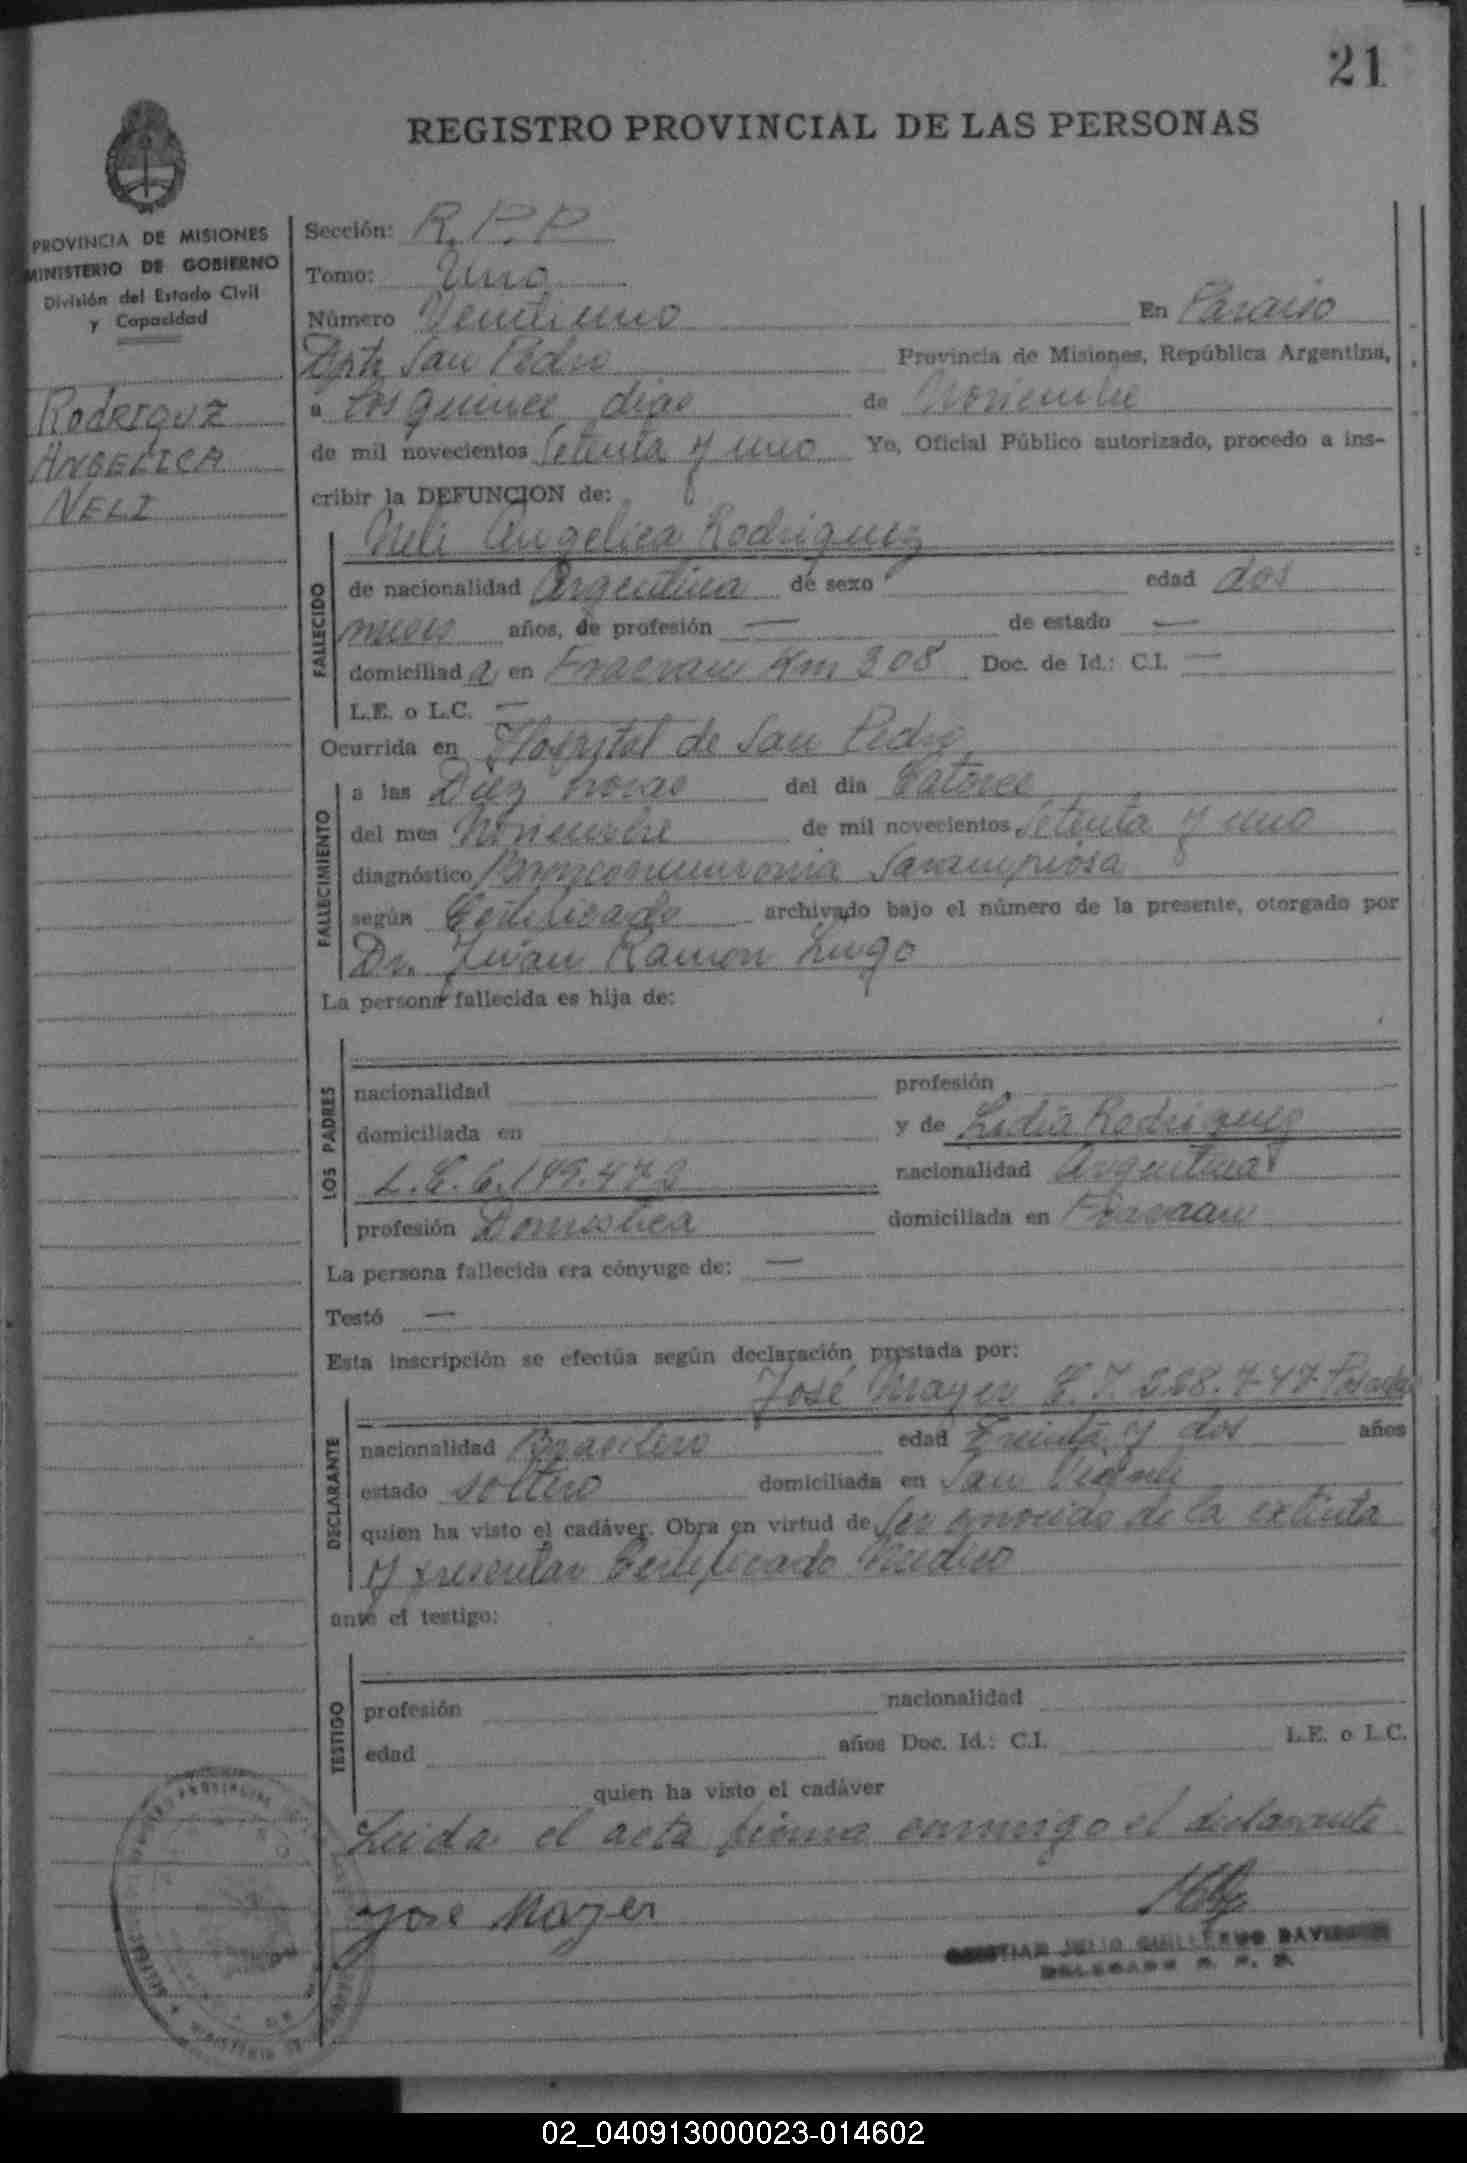 21
REGISTRO PROVINCIAL DE LAS PERSONAS
PROVINCIA DE MISIONES
MINISTERIO DE GOBIERNO
División del Estado Civil
y Capacidad
RODRIGUZ
ANGELICA
NELI
Sección: R.P.P
Tomo: Uno
Número Ventiuno En Paraiso
Dpto San Pedro Provincia de Misiones, República Argentina,
a los quince dias de Noviembre
de mil novecientos Setenta y uno Yo, Oficial Público autorizado, procedo a ins-
cribir la DEFUNCION de:
Neli Angelica Rodriguez
FALLECIDO
de nacionalidad Argentina de sexo edad dos
meses años, de profesión — de estado —
domiciliad a en Fracran Km 308 Doc. de Id.: C.I. —
L.E. o L.C. —
Ocurrida en Hospital de San Pedro
FALLECIMIENTO
a las Diez horas del día Catorce
del mes Noviembre de mil novecientos Setenta y uno
diagnóstico Bronconeumonia Sarampiosa
según Certificado archivado bajo el número de la presente, otorgado por
Dr. Juan Ramon Lugo
La persona fallecida es hija de:
LOS PADRES
nacionalidad profesión
domiciliada en y de Lidia Rodriguez
L.C. 6.149.473 nacionalidad Argentina
profesión Domestica domiciliada en Fracran
La persona fallecida era cónyuge de: —
Testó —
Esta inscripción se efectúa según declaración prestada por:
José Mayer C.I. 228.747 Posadas
DECLARANTE
nacionalidad Brasilero edad Treinta y dos años
estado soltero domiciliada en San Vicente
quien ha visto el cadáver. Obra en virtud de ser conocido de la extinta
y presentar Certificado Medico
ante el testigo:
TESTIGO
profesión nacionalidad
edad años Doc. Id.: C.I. L.E. o L.C.
quien ha visto el cadáver
Leida el acta firma conmigo el declarante
Jose Mayer
JULIO GUILLERMO
DELEGADO R. P. P.
02_040913000023-014602